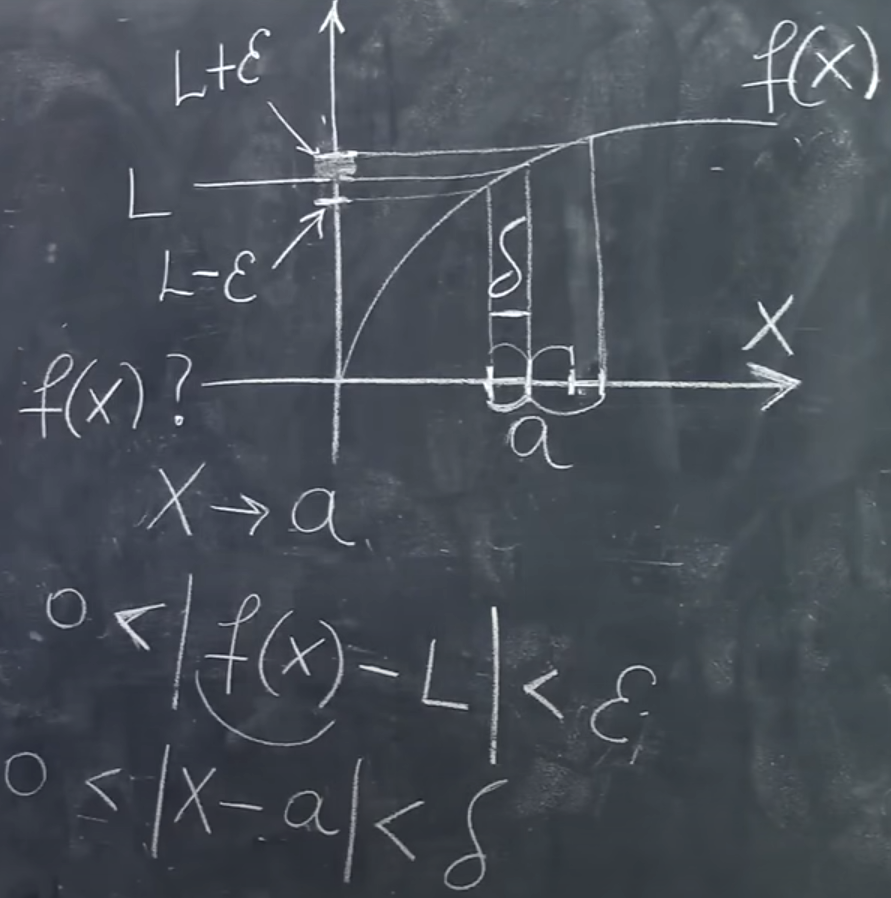 L+ε
f(x)
L
δ
L-ε
X
f(x)?
a
X → a
0 < |f(x) - L| < ε
0 < |X - a| < δ